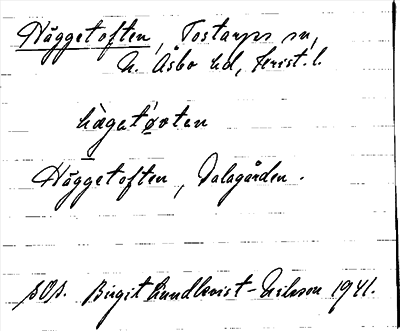 Häggetoften, Tostarps sn,
N. Åsbo hd, Krist. l.
hàgatòvten
Häggetoften, Dalagården.
Birgit Lundkvist-Nilsson 1941.